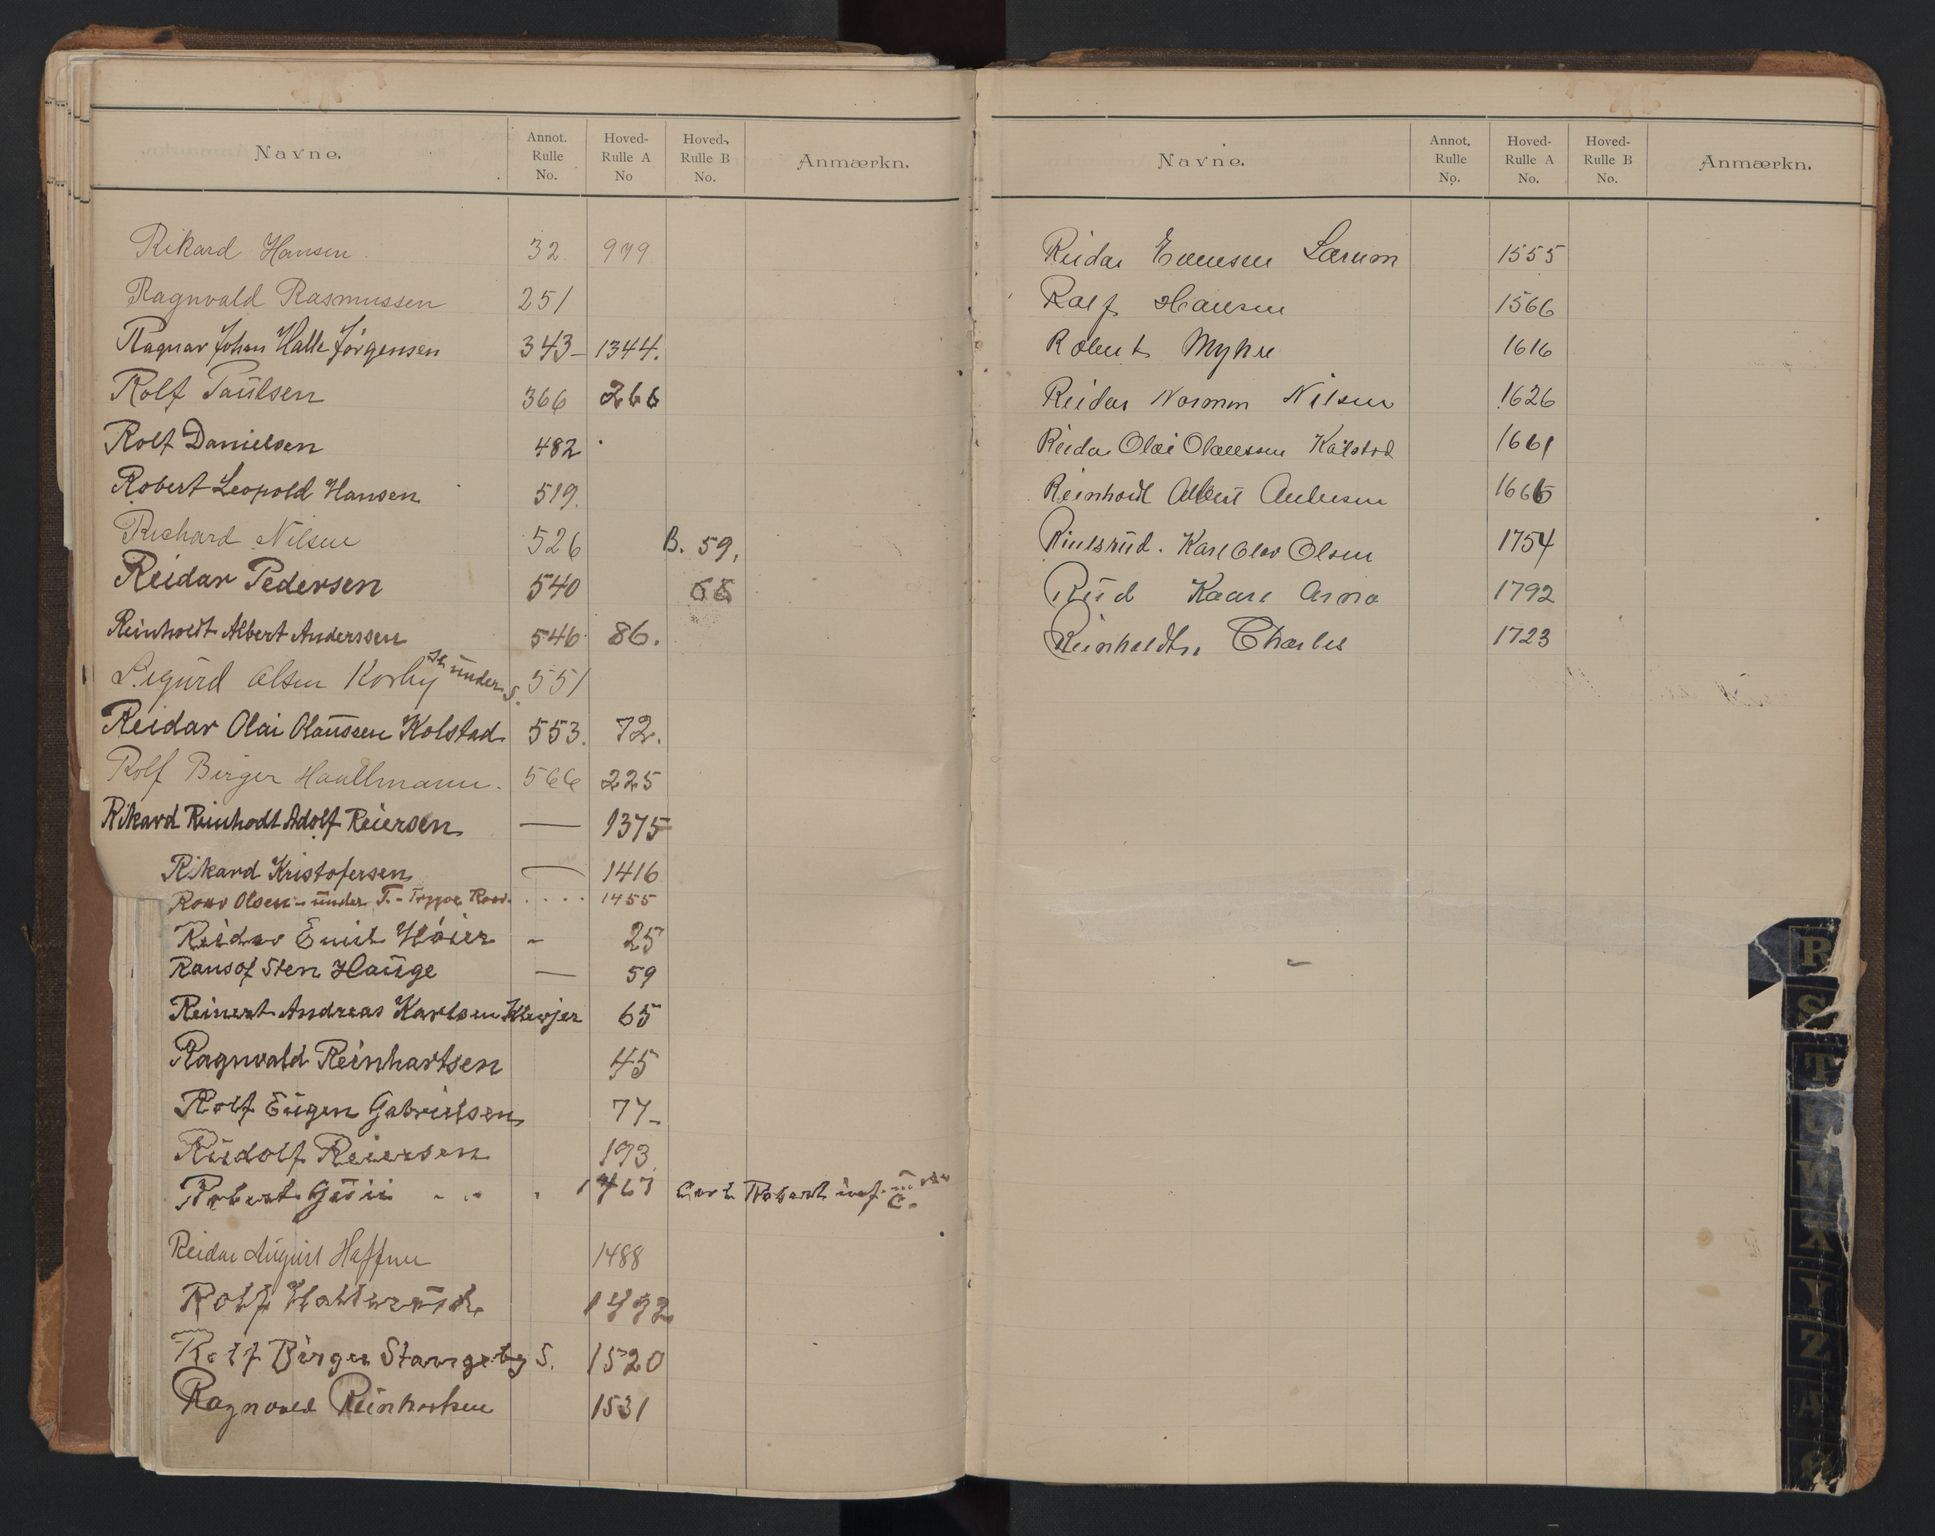 Navne. Annot. Rulle No. Hoved-Rulle A No Hoved-Rulle B No. Anmærkn.
Rikard Hansen 32 979
Ragnvald Rasmussen 251
Ragnar Johan Halle Jørgensen 343 – 1344.
Rolf Paulsen 366 266
Rolf Danielsen 482
Robert Leopold Hansen 519.
Richard Nilsen 526 B. 59.
Reidar Pedersen 540 68
Reinholdt Albert Anderssen 546 86.
Sigurd Olsen Korby under S. 551
Reidar Olai Olaussen Kolstad 553. 72.
Rolf Birger Haallmann. 566 225
Rikard Reinhodt Adolf Reiersen — 1375
Rikard Kristofersen — 1416
Olsen – under T. – Trygve 1455
Reidar Emil Höier - 25
Sten Hauge — 59
Reinert Andreas Karlsen 65
Ragnvald Reinhartsen 45
Rolf Eugen Gabrielsen 77-
Rudolf Reiersen 193
Robert 1467 Carl Robert under C.
Reidar August Haffner 1488
Rolf 1492
Rolf Birger Stangeby S. 1520
Ragnvald Reinhartsen 1531
Navne. Annot. Rulle No. Hoved-Rulle A No. Hoved-Rulle B No. Anmærkn.
Reidar Evensen Lærum 1555
Rolf Hansen 1566
Robert Myhre 1616
Reidar Norman Nilsen 1626
Reidar Olai Olaussen Kolstad 1661
Reinholdt Albert Andersen 1666
Karl Olav Olsen 1754
Rud Kaare Arno 1792
Charles 1723
R
S
T
U
W
X
Y
Z